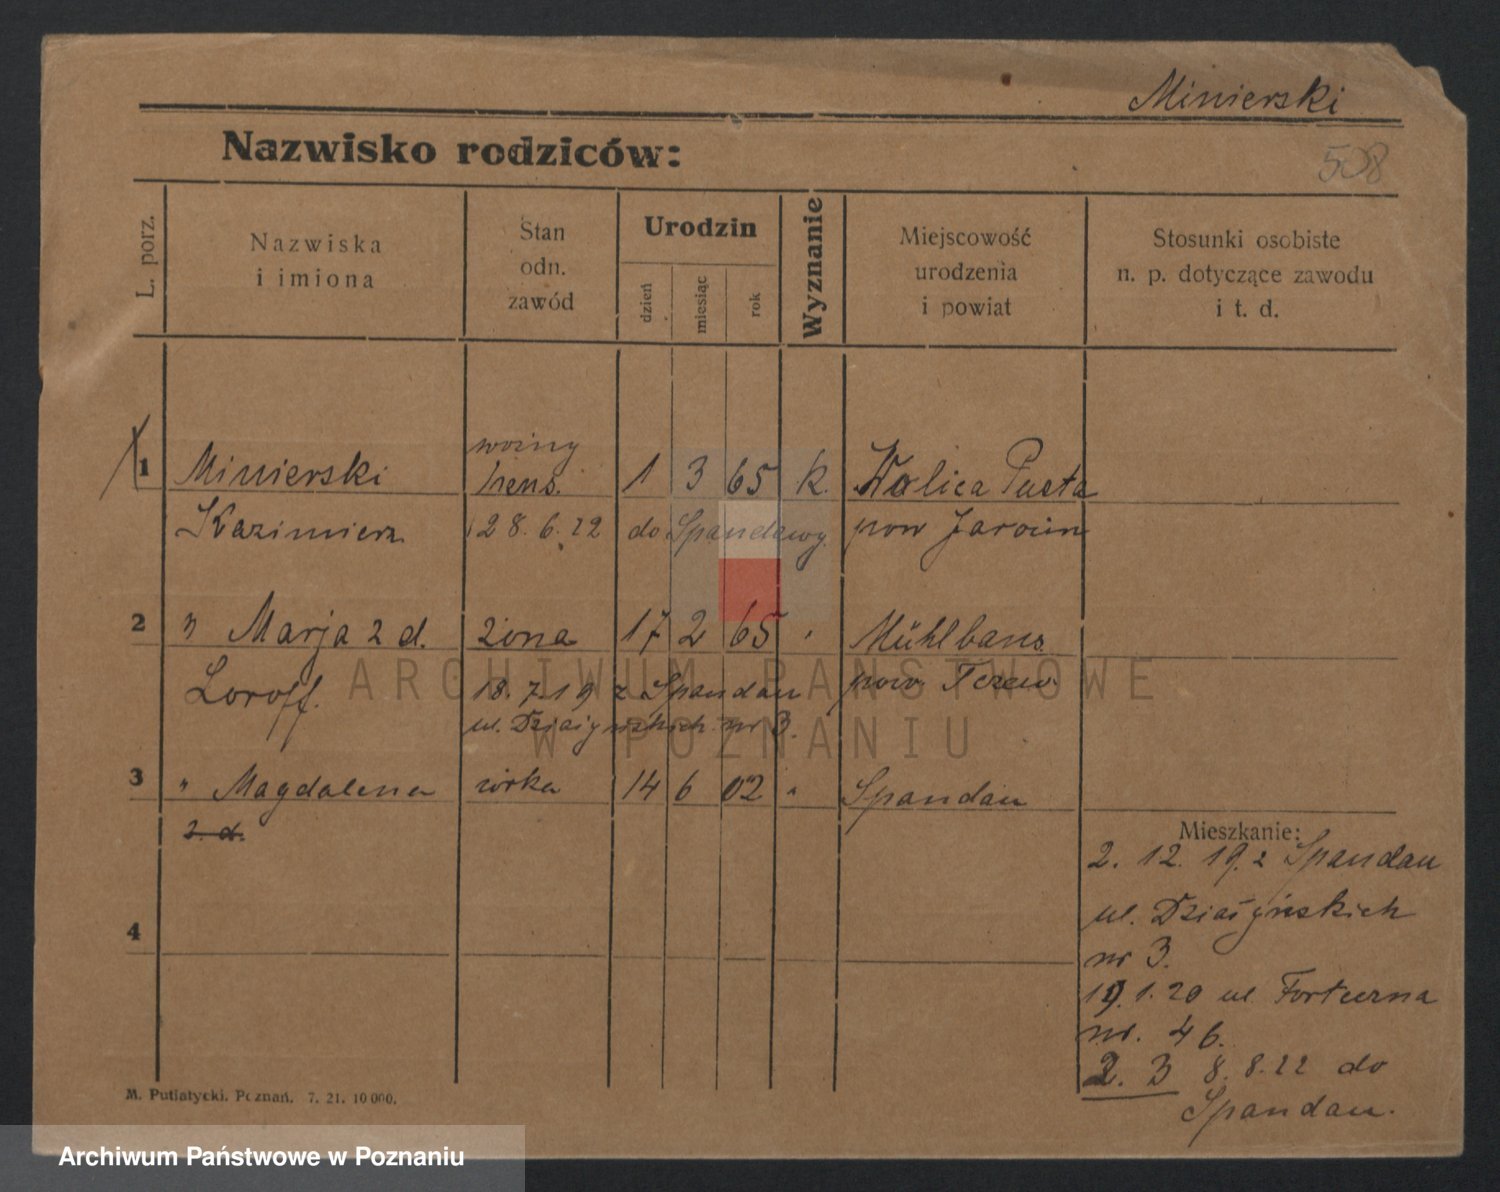 Minierski
Nazwisko rodziców:
508
L. porz.
Nazwiska
i imiona
Stan
odn.
zawód
Urodzin
dzień
miesiąc
rok
Wyznanie
Miejscowość
urodzenia
i powiat
Stosunki osobiste
n. p. dotyczące zawodu
i t. d.
woźny
1 Minierski 1 3 65 k. Wolica Pusta
Kazimierz 28.6.22 do Spandawy. pow Jarocin
2 " Marja 2 d. żona 17 2 65 " Mühlbanz
Loroff. 18.7.19 z Spandau pow. Tczew
ul. Działyńskich nr 3.
3 " Magdalena córka 14 6 02 " Spandau
2. d.
Mieszkanie:
2. 12. 19. z Spandau
ul. Działyńskich
nr 3.
4
19.1.20 ul. Forteczna
nr. 46.
2. 3 8.8.22 do
Spandau.
M. Putiatycki. Poznań. 7. 21. 10 000.
ARCHIWUM PAŃSTWOWE
W POZNANIU
Archiwum Państwowe w Poznaniu